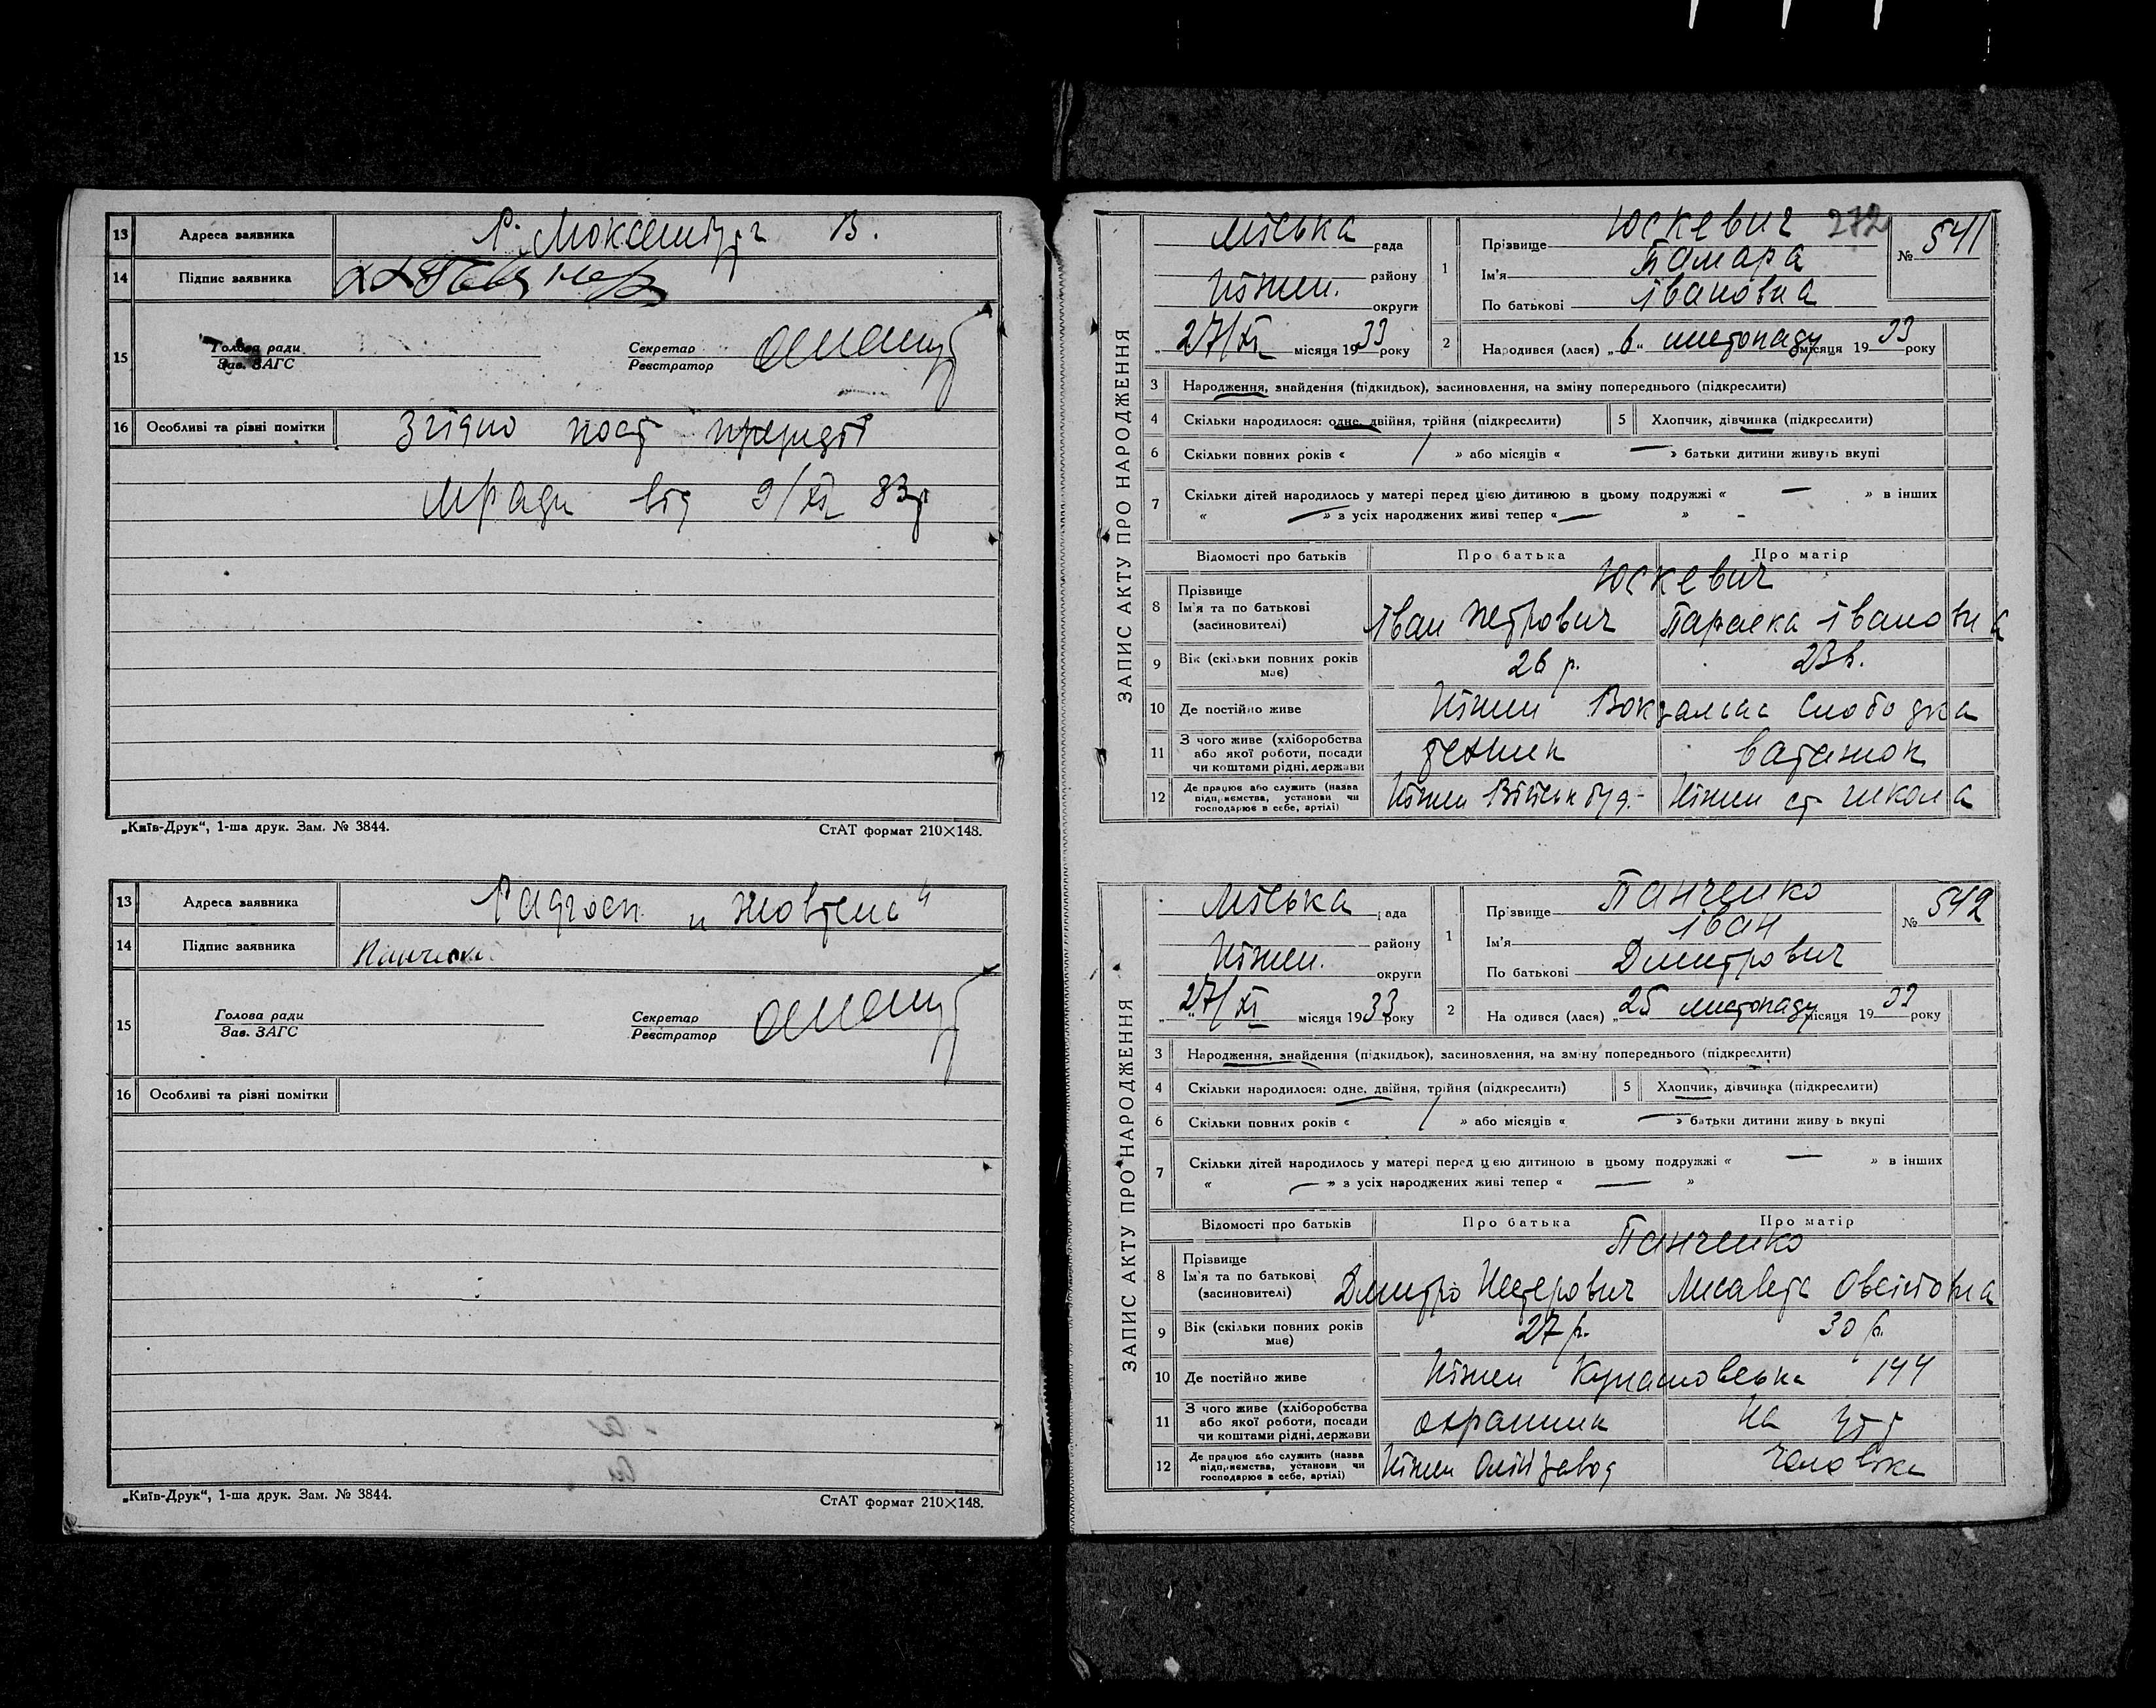 13 Адреса заявника В.
14 Підпис заявника
15 Голова ради
Зав. ЗАГС
Секретар
Реєстратор
16 Особливі та різні помітки Згідно пост президії
мради від 9/XI 33р
„Київ-Друк“, 1-ша друк. Зам. № 3844. СтАТ формат 210×148.
13 Адреса заявника Радгосп „Жовтень“
14 Підпис заявника Панченко
15 Голова ради
Зав. ЗАГС
Секретар
Реєстратор
16 Особливі та різні помітки
„Київ-Друк“, 1-ша друк. Зам. № 3844. СтАТ формат 210×148.
272
ЗАПИС АКТУ ПРО НАРОДЖЕННЯ
Міська рада
району
Ніжен. округи
„27/XI місяця 1933 року
1 Прізвище Юскевич
Ім'я Тамара
По батькові Івановна
№ 541
2 Народився (лася) „6“ листопаду місяця 1933 року
3 Народження, знайдення (підкидьок), засиновлення, на зміну попереднього (підкреслити)
4 Скільки народилося: одне, двійня, трійня (підкреслити) 5 Хлопчик, дівчинка (підкреслити)
6 Скільки повних років « / » або місяців « — » батьки дитини живуть вкупі
7 Скільки дітей народилось у матері перед цією дитиною в цьому подружжі « — » в інших
« — » з усіх народжених живі тепер « — » -
Відомості про батьків Про батька Про матір
Юскевич
8 Прізвище
Ім'я та по батькові
(засиновителі)
Іван Петрович Параска Івановна
9 Вік (скільки повних років має) 26 р. 23 р.
10 Де постійно живе Ніжен Вокзальна Слободка
11 З чого живе (хліборобства
або якої роботи, посади
чи коштами рідні, держави
технік
12 Де працює або служить (назва
підприємства, установи чи
господарює в себе, артілі)
Ніжен Ніжен ст школа
ЗАПИС АКТУ ПРО НАРОДЖЕННЯ
Міська рада
району
Ніжен. округи
„27/XI місяця 1933 року
1 Прізвище Панченко
Ім'я Іван
По батькові Дмитрович
№ 542
2 Народився (лася) „25 листопаду місяця 1933 року
3 Народження, знайдення (підкидьок), засиновлення, на зміну попереднього (підкреслити)
4 Скільки народилося: одне, двійня, трійня (підкреслити) 5 Хлопчик, дівчинка (підкреслити)
6 Скільки повних років « / » або місяців « — » батьки дитини живуть вкупі
7 Скільки дітей народилось у матері перед цією дитиною в цьому подружжі « — » в інших
« — » з усіх народжених живі тепер « — »
Відомості про батьків Про батька Про матір
Панченко
8 Прізвище
Ім'я та по батькові
(засиновителі)
Дмитро Нестерович Лисавета
9 Вік (скільки повних років має) 27 р. 30 р.
10 Де постійно живе Ніжен 144
11 З чого живе (хліборобства
або якої роботи, посади
чи коштами рідні, держави
охранник На
12 Де працює або служить (назва
підприємства, установи чи
господарює в себе, артілі)
Ніжен Олійзавод Чоловіка